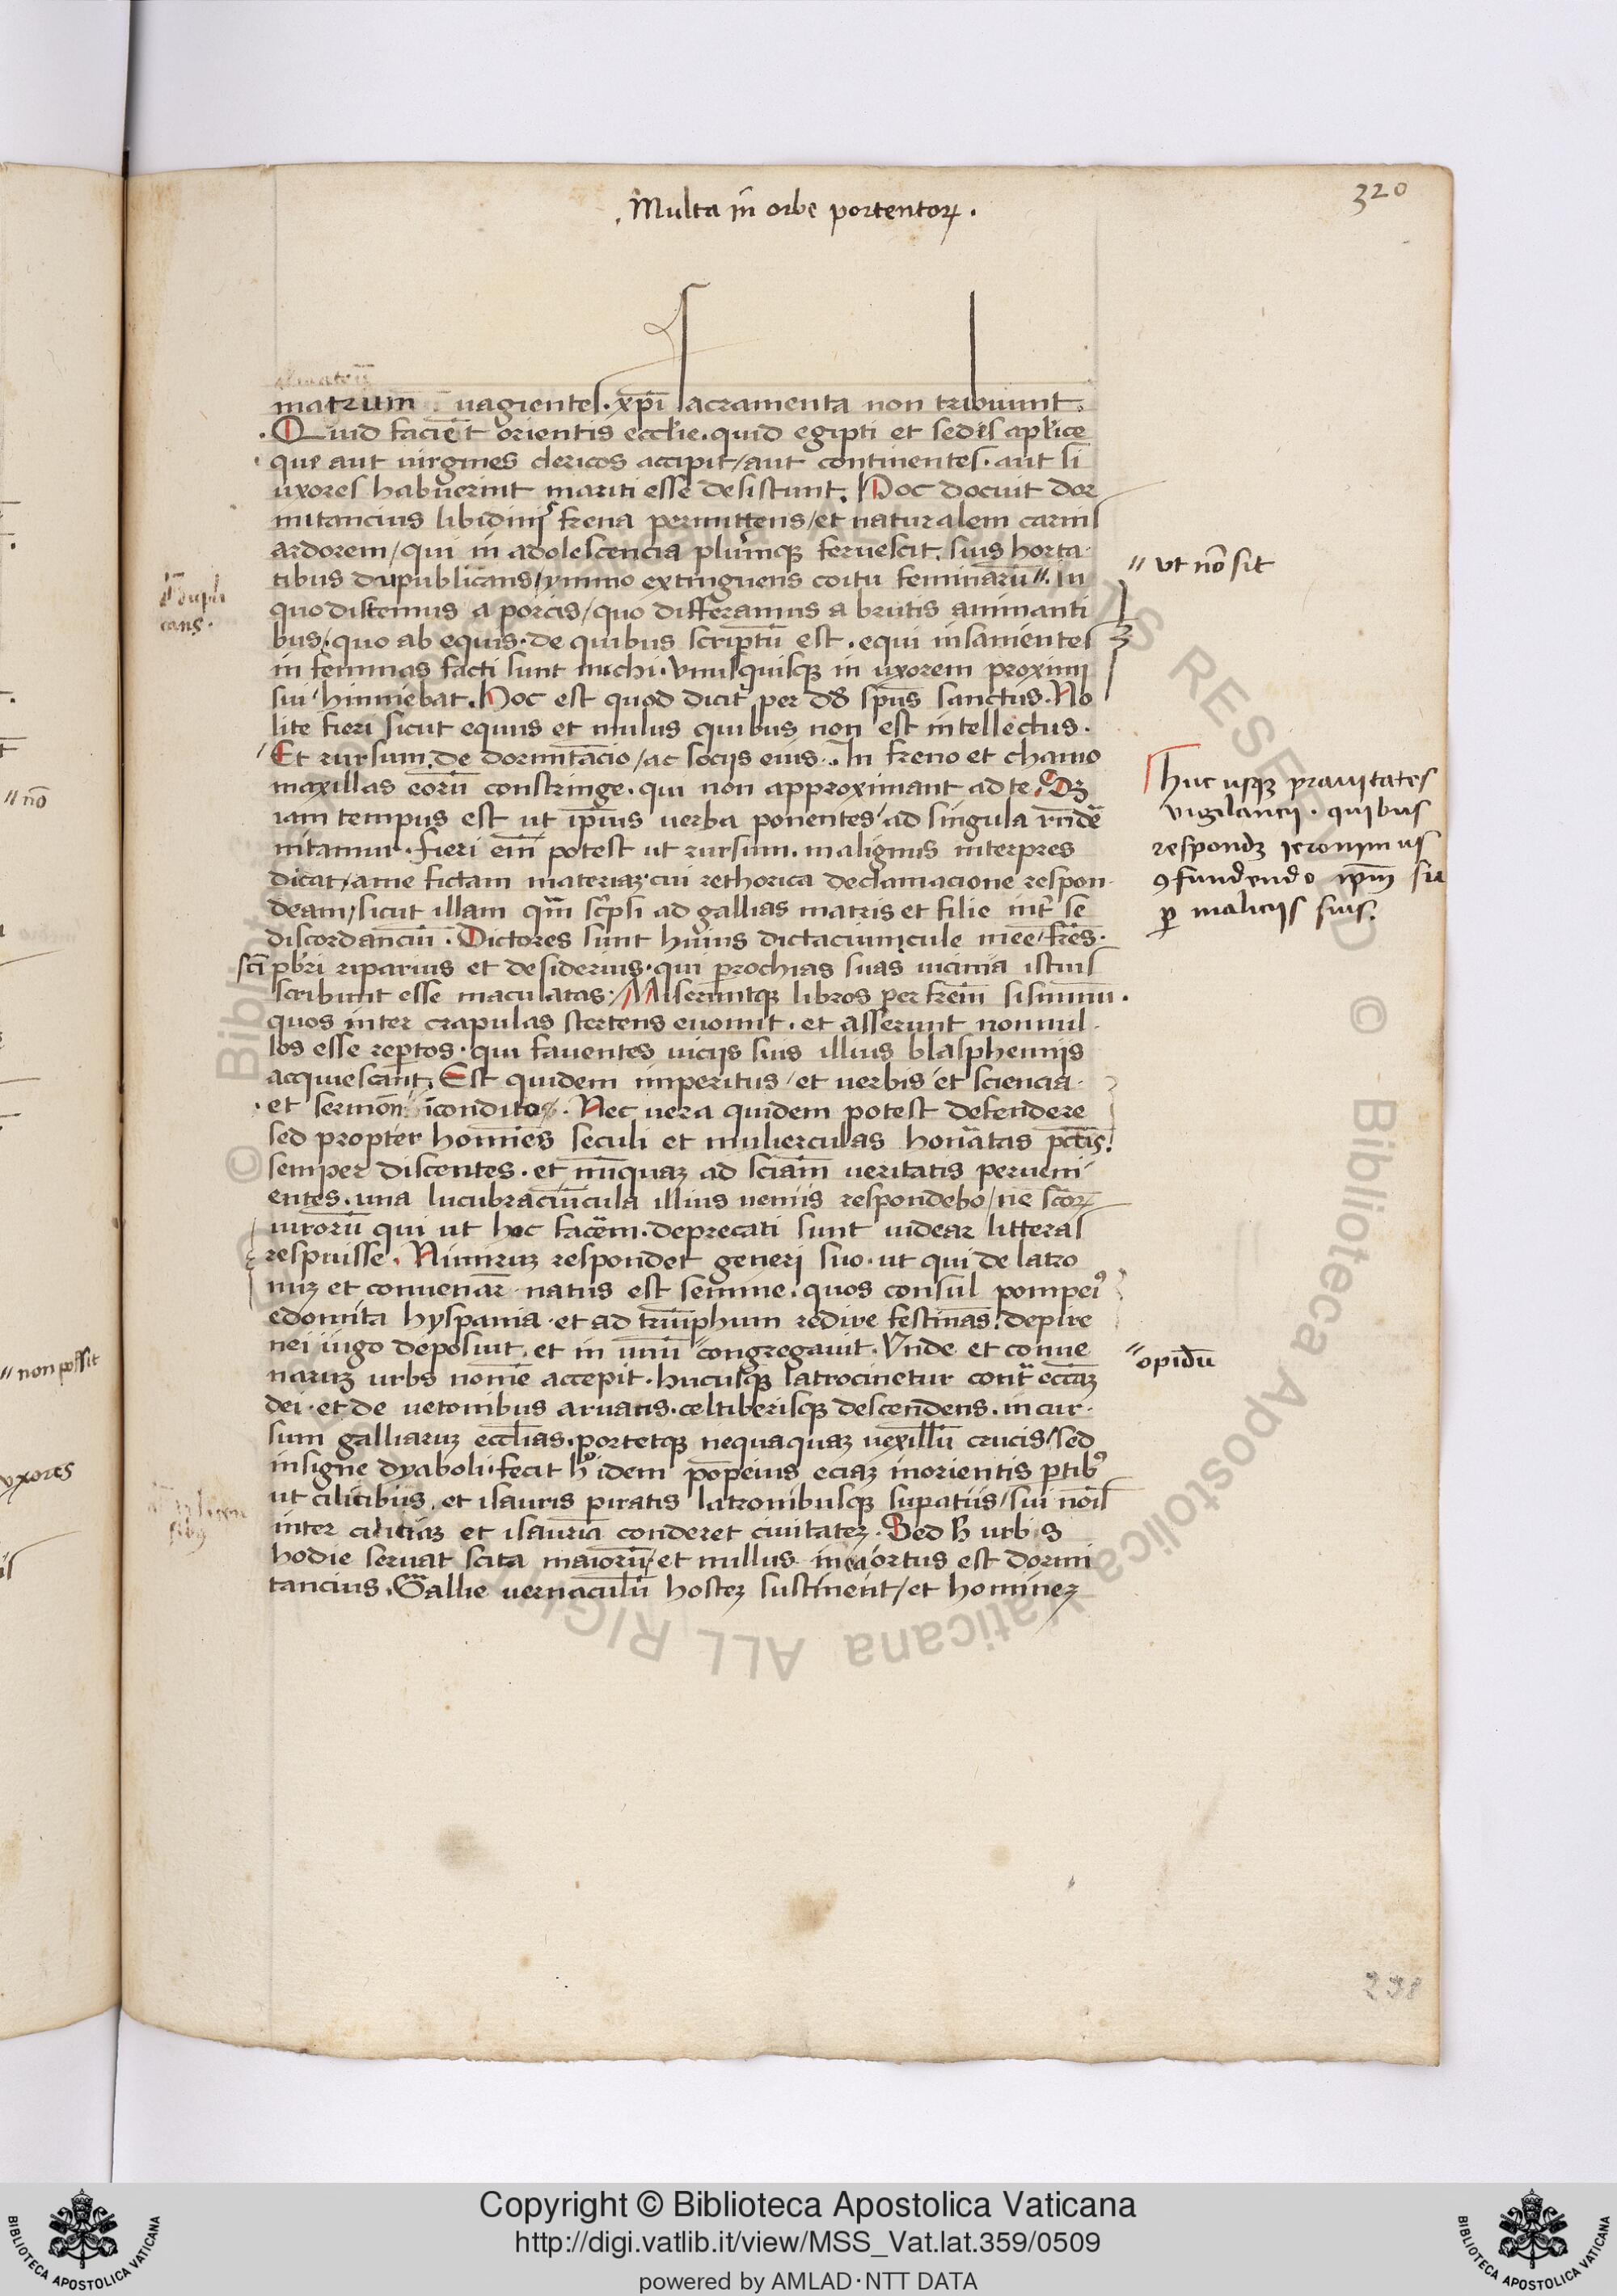 320
. Multa in orbe portentoꝝ .
matrum vagientes . xp̄i sacramenta non tribuunt .
Quid facient orientis eccl̄ie . quid egipti et sedis apl̄ice
que aut virgines clericos accipit / aut continentes . aut si
uxores habuerint mariti esse desistunt . Hoc docuit dor
mitancius libidini frena permittens / et naturalem carnis
ardorem / qui in adolescencia plurimqꝫ feruescit . suis horta
tibus dupublicans / ymmo extinguens coitu feminarū // . In
quo distemus a porcis / quo differamus a brutis animanti
bus / quo ab equis . de quibus scriptū est . equi insanientes
in feminas facti sunt michi . vnusquisqꝫ in uxorem proximi
sui hinniebat . Hoc est quod dicit̄ per dd sp̄us sanctus . No
lite fieri sicut equus et mulus quibus non est intellectus .
Et rursum de dormitācio / ac sociis eius . In freno et chamo
maxillas eorū constringe . qui non approximant ad te . Sꝫ
iam tempus est ut ip̄ius uerba ponentes ad singula rn̄dē
nitamur . fieri em̄ potest ut rursum . malignus interpres
dicat / a me fictam materiaꝫ . cui rethorica declamacione respon
deam / sicut illam qm̄ sc̄psi ad gallias matris et filie int̄ se
discordanciū . Dictores sunt huius dictaciuncule mee / fr̄es .
sc̄i pbr̄i riparius et desiderius . qui parrochias suas uicinia istius
scribunt esse maculatas . Miseruntqꝫ libros per frēm sisinniū .
quos inter crapulas stertens euomit . et asserunt nonnul
los esse rep̄tos . qui fauentes uiciis suis illius blasphemiis
acquiescant . Est quidem imperitus / et uerbis et sciencia .
et sermōn īconditos . Nec uera quidem potest defendere
sed propter homines seculi et mulierculas honāatas pctīs .
semper discentes . et nūquaꝫ ad sciam̄ veritatis perueni
entes . una lucubraciūcula illius neniis respondebo / ne sc̄oꝝ
uirorū qui ut hoc facerem . deprecati sunt uidear litteras
respuisse . Nimiruꝫ respondet generi suo . ut qui de latro
nuꝫ et conuenaꝝ natus est semine . quos consul pompeiꝰ
edomita hyspania . et ad triūphum redire festinans . de pire
nei iugo deposuit . et in unū congregauit . Vnde et conue
naruꝫ urbs nomē accepit . hucusqꝫ latrocinetur contra eccāꝫ
dei . et de uetonibus aruatis . celtiberisqꝫ descendens . incur
sum galliaruꝫ eccl̄ias . portetqꝫ nequaquaꝫ uexillū crucis / sed
insigne dyaboli . fecit hꝰ idem pōpeius eciaꝫ in orientis partibꝰ
ut cilicibus . et isauris piratis latronibusqꝫ supatiis / sui nōis
inter ciliciaꝫ et isauriā conderet ciuitateꝫ . Sed h̄ urbs
hodie seruat scita maiorū / et nullus in ea ortus est dormi
tancius . Gallie uernaculū hosteꝫ sustinent / et homineꝫ
// vt nōn sit
dupli
cans .
huc usqꝫ prauitates
vigilancii . quibus
respondꝫ ieronimus
ꝯfundendo ip̄m su
ꝑ maliciis suis .
// opidū
// nō
// non possit
vxores
238
Copyright © Biblioteca Apostolica Vaticana
http://digi.vatlib.it/view/MSS_Vat.lat.359/0509
powered by AMLAD·NTT DATA
BIBLIOTECA APOSTOLICA VATICANA
BIBLIOTECA APOSTOLICA VATICANA